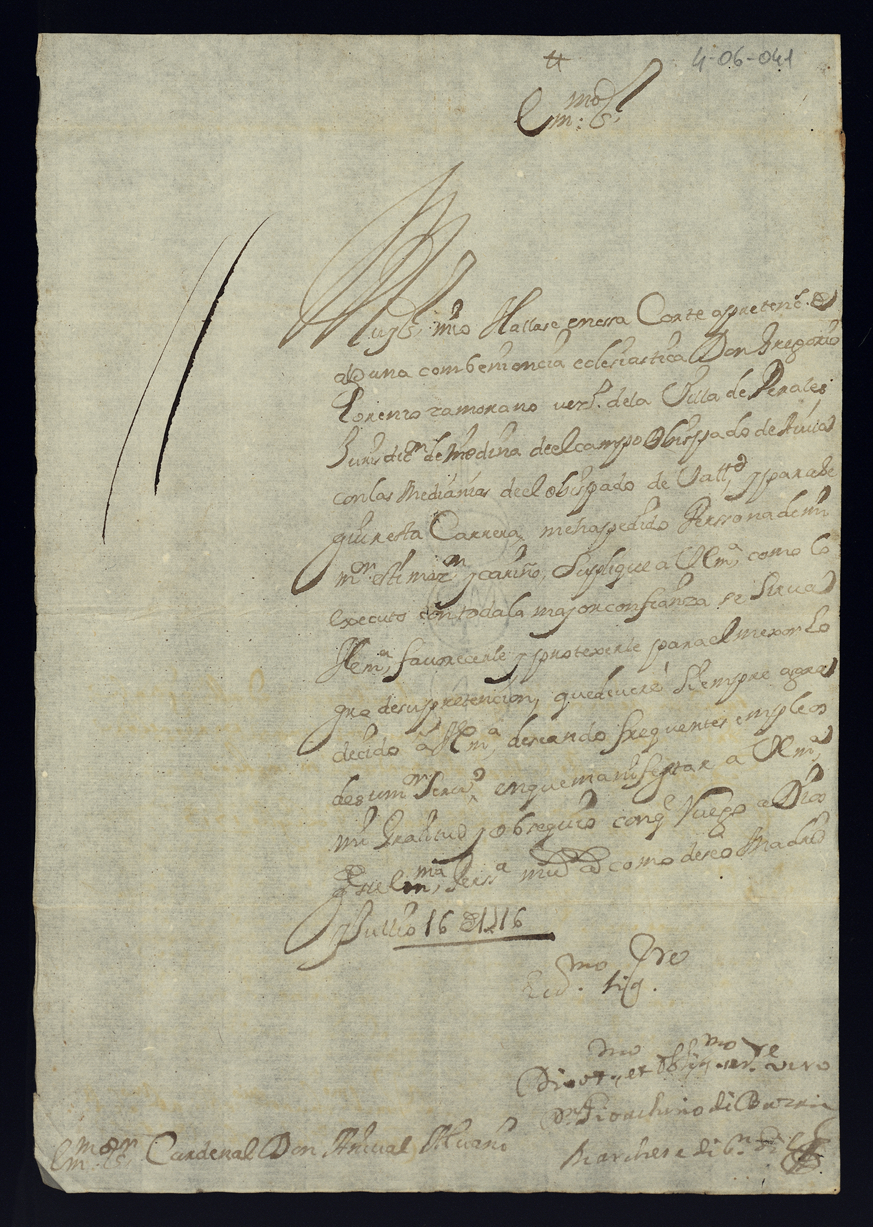 4-06-041
Em.mo S.r
Muy S.r mio Hallase en essa Corte a pretenz.on de
alguna combeniencia eclesiastica Don Gregorio
Lorenzo zamorano vez.o de la Villa de Perales
Jurisdiz.on de Medina de el campo Obispado de Auila
con las Medianias de el obispado de Vall.d y para
esta Carrera, me ha pedido Perssona de mi
m.or estimaz.on y cariño, Suplique a V Em.a como lo
executo con toda la mayor confianza se Sirua
V Em.a, fauorecerle y protexerle para el mexor Lo
gro de su pretencion, que viuiré Siempre agra
decido â V Em.a, deseando frequentes empleos
de su m.or Serui.o en que manifestar a V Em.a,
mi Gratitud y obsequio con q Ruego a Dios
g.de a V Em.ma, Perss.a mu.s a.s como deseo Madrid
Jullio 16 de 1716
mo Pre
Sig.
mo
Diuot. et
Marchese di
Em.mo S.or Cardenal Don Aniual Aluano